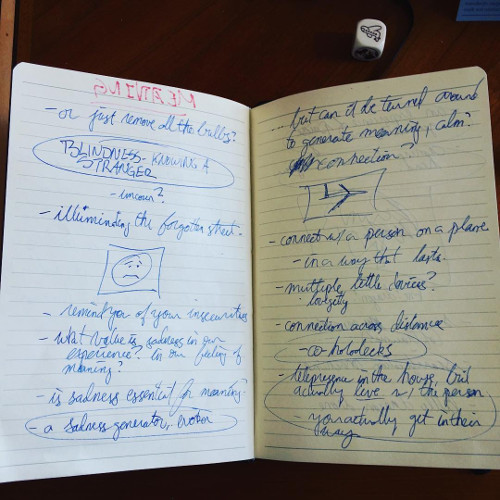 MEANING
- or just remove all the bulbs?
BLINDNESS - KNOWING A
STRANGER
- uncover?
- illuminating the forgotten street
- remind you of your insecurities
- what value is sadness in our
experience? In our feeling of
meaning?
- is sadness essential for meaning?
- a sadness generator, broken
... but can it be turned around
to generate meaning, calm?
connection?
- connect w/ a person on a plane
- in a way that lasts.
- multiple little devices?
- connection across distance
- co-holodecks
- telepresence in the house, but
actually live w/ the person
- you actually get in their
way